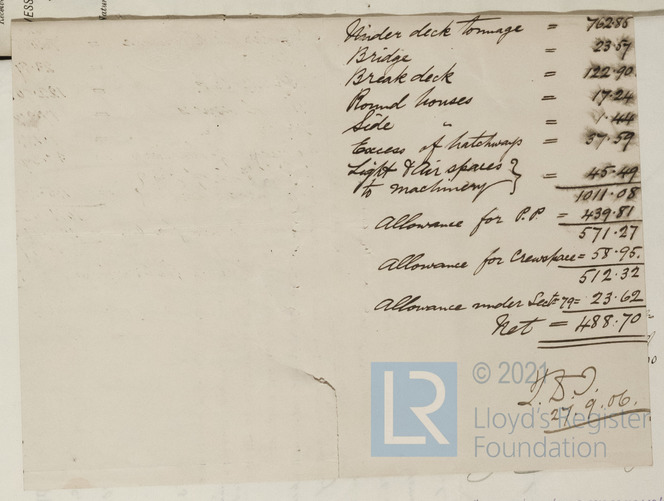 Under deck tonnage = 762.85
Bridge = 23.57
Break deck = 122.90
Round houses = 17.24
Side " = 1.44
Excess of hatchways = 37.59
Light & Air spaces
to machinery } = 45.49
1011.08
Allowance for P.P. = 439.81
571.27
Allowance for Crewspace = 58.95.
512.32
Allowance under Sect: 79 = 23.62
Net = 488.70
27.9.06.
LR
© 2021
Lloyd's Register
Foundation